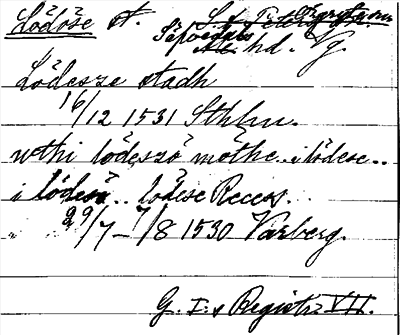 Lödöse st. S:t Peders
Sävedals hd. Vg.
Lödesze stadh
16/12 1531 Sthlm.
wthi lödeszö möthe.. i lödese..
i lödese.. lödese Recess..
" 29/7 – 7/8 1530 Varberg.
G. I:s Registr. VII.